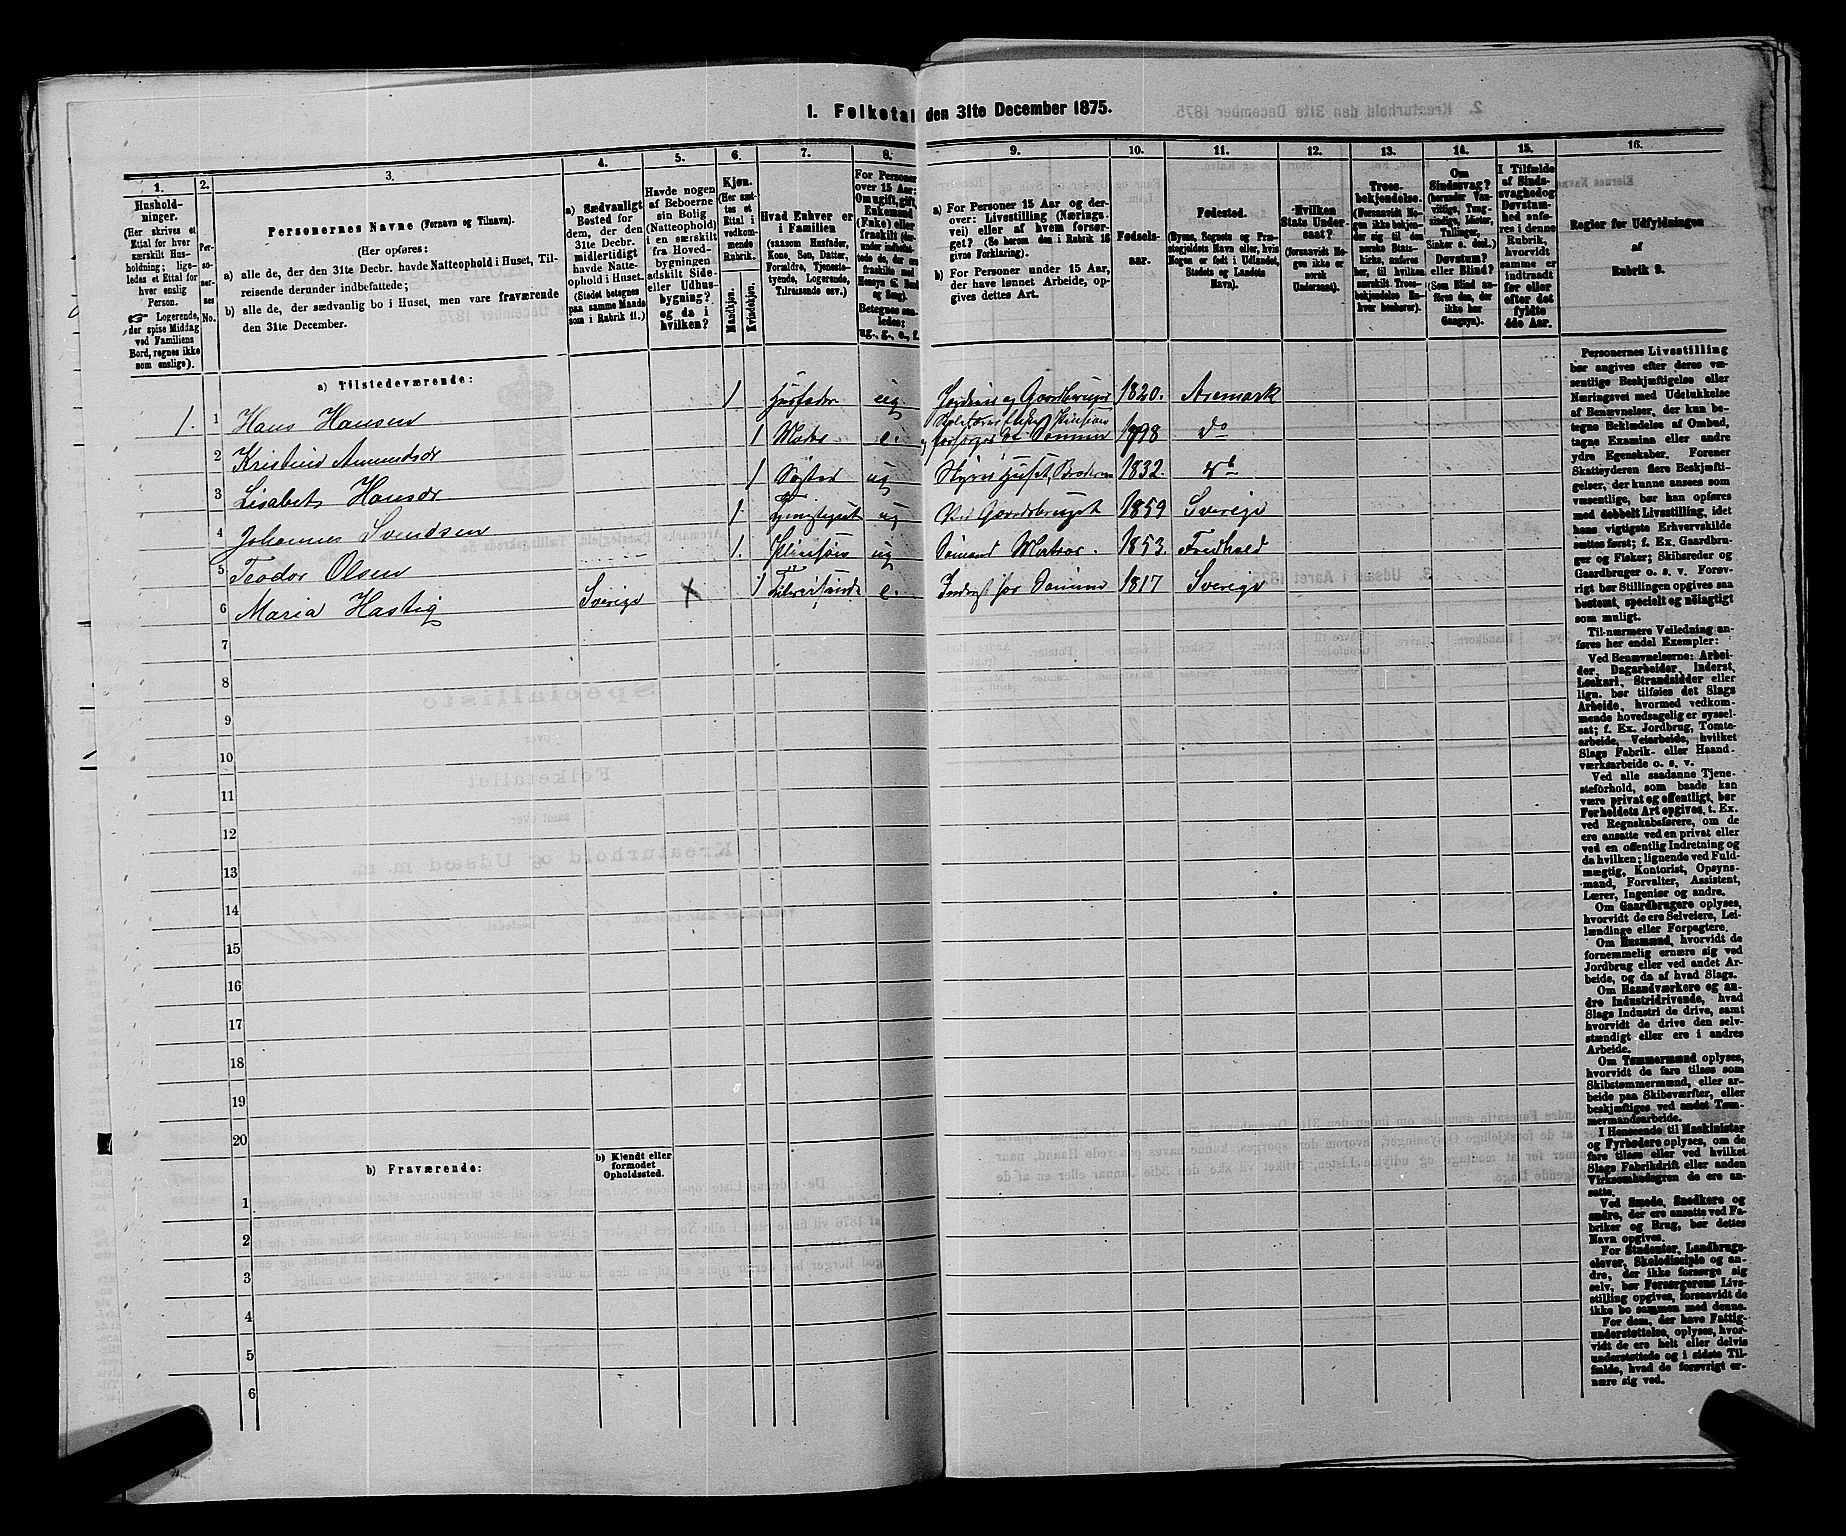 1. Folketal den 31te December 1875.
1.
2.
3.
4.
5.
6.
7.
8.
9.
10.
11.
12.
13.
14.
15.
16.
Hushold-
ninger.
(Her skrives et
Ettal for hver
særskilt Hus-
holdning; lige-
ledes et Ettal for
hver enslig
Person.
☞ Logerende,
der spise Middag
ved Familiens
Bord, regnes ikke
som enslige).
Per-
so-
ner-
nes
No.
Personernes Navne (Fornavn og Tilnavn).
(Her opføres:
a) alle de, der den 31te Decbr. havde Natteophold i Huset, Til-
reisende derunder indbefattede;
b) alle de, der sædvanlig bo i Huset, men vare fraværende
den 31te December.
a) Sædvanligt
Bosted for
dem, der den
31te Decbr.
midlertidigt
havde Natte-
ophold i Huset.
(Stedet betegnes
paa samme Maade
som i Rubrik 11.)
Havde nogen
af Beboerne
sin Bolig
(Natteophold)
i en særskilt
fra Hoved-
bygningen
adskilt Side-
eller Udhus-
bygning?
og da i
hvilken?
Kjøn.
(Her sæt-
tes et
Ettal i
vedkom-
mende
Rubrik.
Mandkjøn.
Kvindekjøn.
Hvad Enhver er
i Familien
(saasom Husfader,
Kone, Søn, Datter,
Forældre, Tjeneste-
tyende, Logerende,
Tilreisende osv.)
For Personer
over 15 Aar:
Om ugift, gift,
Enkemand
(Enke) eller
fraskilt
Betegnes saa-
ledes:
ug., g., e., f.
a) For Personer 15 Aar og der-
over: Livsstilling (Nærings-
vei) eller af hvem forsør-
get? (Se herom den i Rubrik 16
givne Forklaring).
b) For Personer under 15 Aar,
der have lønnet Arbeide, op-
gives dettes Art.
Fødsels-
aar.
Fødested.
(Byens, Sognets og Præ-
stegjeldets Navn eller, hvis
Nogen er født i Udlandet,
Stedets og Landets
Navn).
Hvilken
Stats Under-
saat?
(forsaavidt No-
gen ikke er
norsk
Undersaat).
Troes-
bekjendelse.
(Forsaavidt No-
gen ikke bekjen-
der sig til den
norske Stats-
kirke, anføres
her, til hvilken
særskilt Troes-
bekjendelse En-
hver henhører).
Om
Sindssvag?
(herunder Van-
vittige, Tung-
sindige, Idioter,
Tullinger,
Sinker o. desl.)
Døvstum?
eller Blind?
(Som Blind an-
føres den, der
ikke har
Gangsyn).
I Tilfælde
af Sinds-
svaghed og
Døvstum-
hed anfø-
res i denne
Rubrik,
hvorvidt
samme er
indtraadt
før eller
efter det
fyldte
4de Aar.
Regler for Udfyldningen
af
Rubrik 9.
a) Tilstedeværende:
1. 1 Hans Hansen 1 Husfader ug Jordeier og Gaardbruger 1820. Aremark
2 Kristine Amundsdr 1 Moder e. forsørges af Sønnen 1798 do
3 Lisabet Hansdr 1 Søster ug Styrer Huset, Broderen 1832. do
4 Johannes Svendsen 1 Tjenestegut ug Ved Gaardsbruget 1859 Sverige
5 Teodor Olsen 1. Pleiesøn ug Sømand Matros. 1853. Fredhald
6 Maria Hastig Sverige X 1 e. 1817 Sverige
7
8
9
10
11
12
13
14
15
16
17
18
19
20
b) Fraværende:
b) Kjendt eller
formodet
Opholdssted.
1
2
3
4
5
6
Personernes Livsstilling
bør angives efter deres væ-
sentlige Beskjæftigelse eller
Næringsvei med Udelukkelse
af Benævnelser, der kun be-
tegne Beklædelse af Ombud,
tagne Examina eller andre
ydre Egenskaber. Forener
Skatteyderen flere Beskjæfti-
gelser, der kunne ansees som
væsentlige, bør han opføres
med dobbelt Livsstilling, idet
hans vigtigste Erhvervskilde
sættes først; f. Ex. Gaardbru-
ger og Fisker; Skibsreder og
Gaardbruger o. s. v. Forøv-
rigt bør Stillingen opgives saa
bestemt, specielt og nøiagtigt
som muligt.
Til nærmere Veiledning an-
føres her endel Exempler:
Ved Benævnelserne: Arbei-
der, Dagarbeider, Inderst,
Løskarl, Strandsidder eller
lign. bør tilføies det Slags
Arbeide, hvormed vedkom-
mende hovedsagelig er syssel-
sat; f. Ex. Jordbrug, Tomte-
arbeide, Veiarbeide, hvilket
Slags Fabrik- eller Haand-
værksarbeide o. s. v.
Ved alle saadanne Tjene-
steforhold, som baade kan
være privat og offentligt, bør
Forholdets Art opgives, t. Ex.
ved Regnskabsførere, om de
ere ansatte ved en privat eller
ved en offentlig Indretning og
da hvilken; lignende ved Fuld-
mægtig, Kontorist, Opsyns-
mand, Forvalter, Assistent,
Lærer, Ingeniør og andre.
Om Gaardbrugere oplyses,
hvorvidt de ere Selveiere, Lei-
lændinge eller Forpagtere.
Om Husmænd, hvorvidt de
fornemmelig ernære sig ved
Jordbrug eller ved andet Ar-
beide, og da af hvad Slags.
Om Haandværkere og an-
dre Industridrivende, hvad
Slags Industri de drive, samt
hvorvidt de drive den selv-
stændigt eller ere i andres
Arbeide.
Om Tømmermænd oplyses,
hvorvidt de fare tilsøs som
Skibstømmermænd, eller ar-
beide paa Skibsværfter, eller
beskjæftiges ved andet Tøm-
mermandsarbeide.
I Henseende til Maskinister
og Fyrbødere oplyses, om de
fare tilsøs eller ved hvilket
Slags Fabrikdrift eller anden
Virksomhedsgren de ere an-
satte.
Ved Smede, Snedkere og
andre, der ere ansatte ved Fa-
briker og Brug, bør dettes
Navn opgives.
For Studenter, Landbrugs-
elever, Skoledisciple og an-
dre, der ikke forsørge sig
selv, bør Forsørgerens Livs-
stilling opgives, forsaavidt de
ikke bo sammen med denne.
For dem, der have Fattig-
understøttelse, oplyses, hvor-
vidt de ere helt eller delvis
understøttede og i sidste Til-
fælde, hvad de forøvrigt er-
nære sig ved.